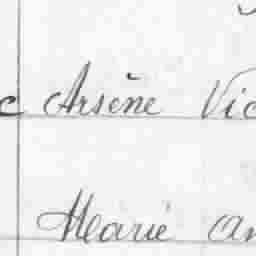 c Arsène Vic
Marie an